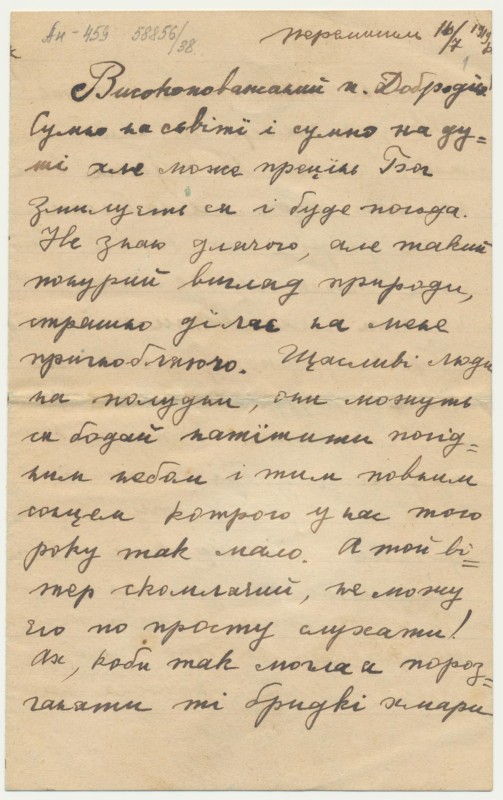 Ан - 459 58856/38
Перемишль 16/7
Високоповажаний п. Добродію
Сумно на сьвітї і сумно на ду=
ші але може прецінь Бог
змилуєть ся і буде погода.
Не знаю длячого, але такий
понурий вигляд природи,
страшно ділає на мене
пригноблюючо. Щасливі люди
на полудни, они можуть
ся бодай натїшити погід=
ним небом і тим повним
сонцем котрого у нас того
року так мало. А той ві=
тер скомлячий, не можу
его по просту слухати!
Ах, коби так могла я пороз=
ганяти ті бридкі хмари